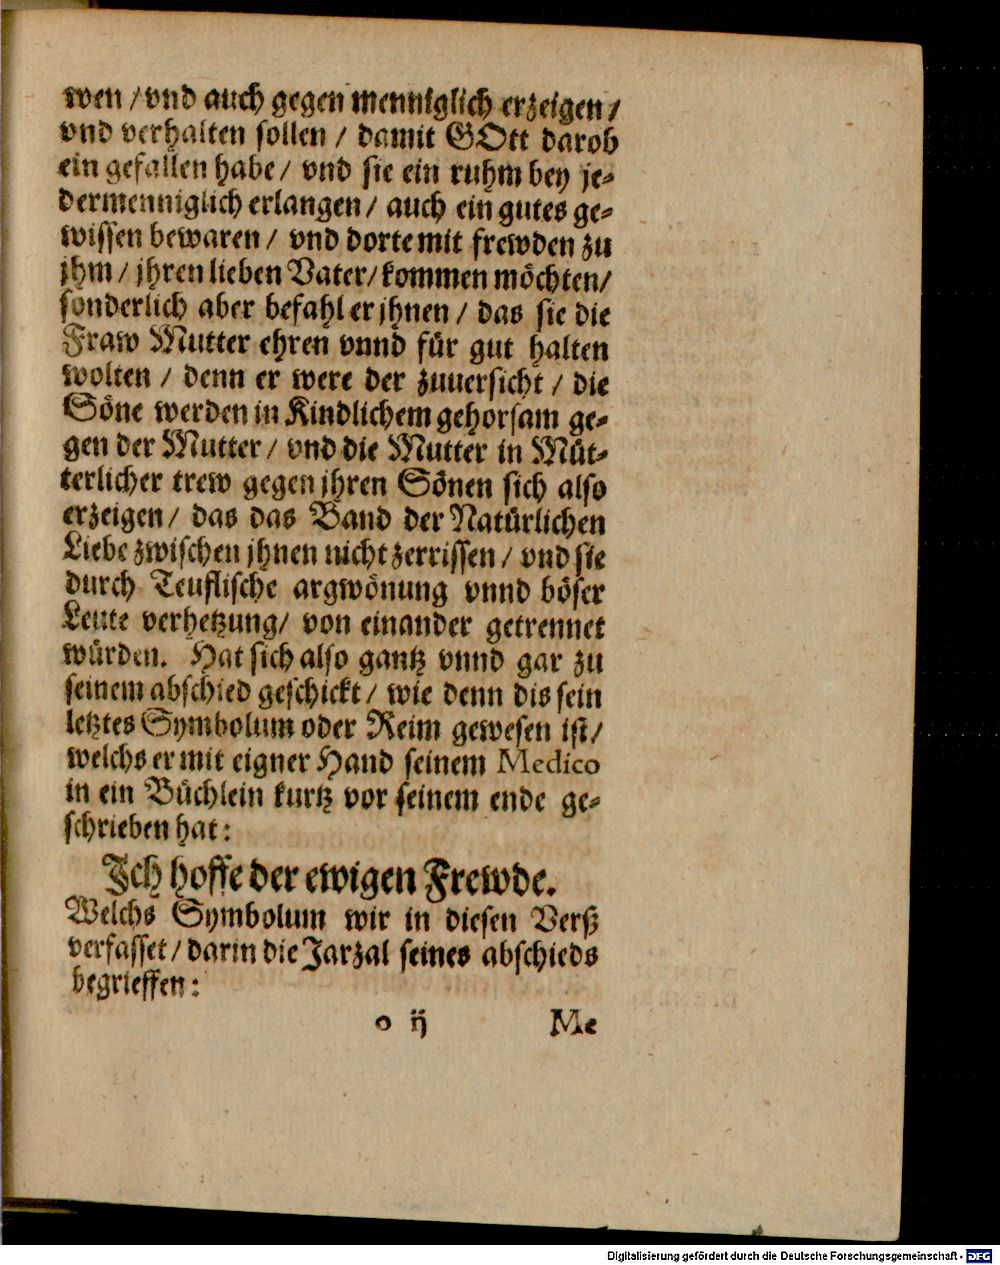 wen / vnd auch gegen menniglich erzeigen /
vnd verhalten sollen / damit GOtt darob
ein gefallen habe / vnd sie ein ruhm bey je-
dermenniglich erlangen / auch ein gutes ge-
wissen bewaren / vnd dorte mit frewden zu
jhm / jhren lieben Vater / kommen möchten /
sonderlich aber befahl er jhnen / das sie die
Fraw Mutter ehren vnnd für gut halten
wolten / denn er were der zuuersicht / die
Söne werden in Kindlichem gehorsam ge-
gen der Mutter / vnd die Mutter in Müt-
terlicher trew gegen jhren Sönen sich also
erzeigen / das das Band der Natürlichen
Liebe zwischen jhnen nicht zerrissen / vnd sie
durch Teuflische argwönung vnnd böser
Leute verhetzung / von einander getrennet
würden. Hat sich also gantz vnnd gar zu
seinem abschied geschickt / wie denn dis sein
letztes Symbolum oder Reim gewesen ist /
welchs er mit eigner Hand seinem Medico
in ein Büchlein kurtz vor seinem ende ge-
schrieben hat:
Ich hoffe der ewigen Frewde.
Welchs Symbolum wir in diesen Verß
verfasset / darin die Jarzal seines abschieds
begrieffen:
o ij Me
Digitalisierung gefördert durch die Deutsche Forschungsgemeinschaft - DFG